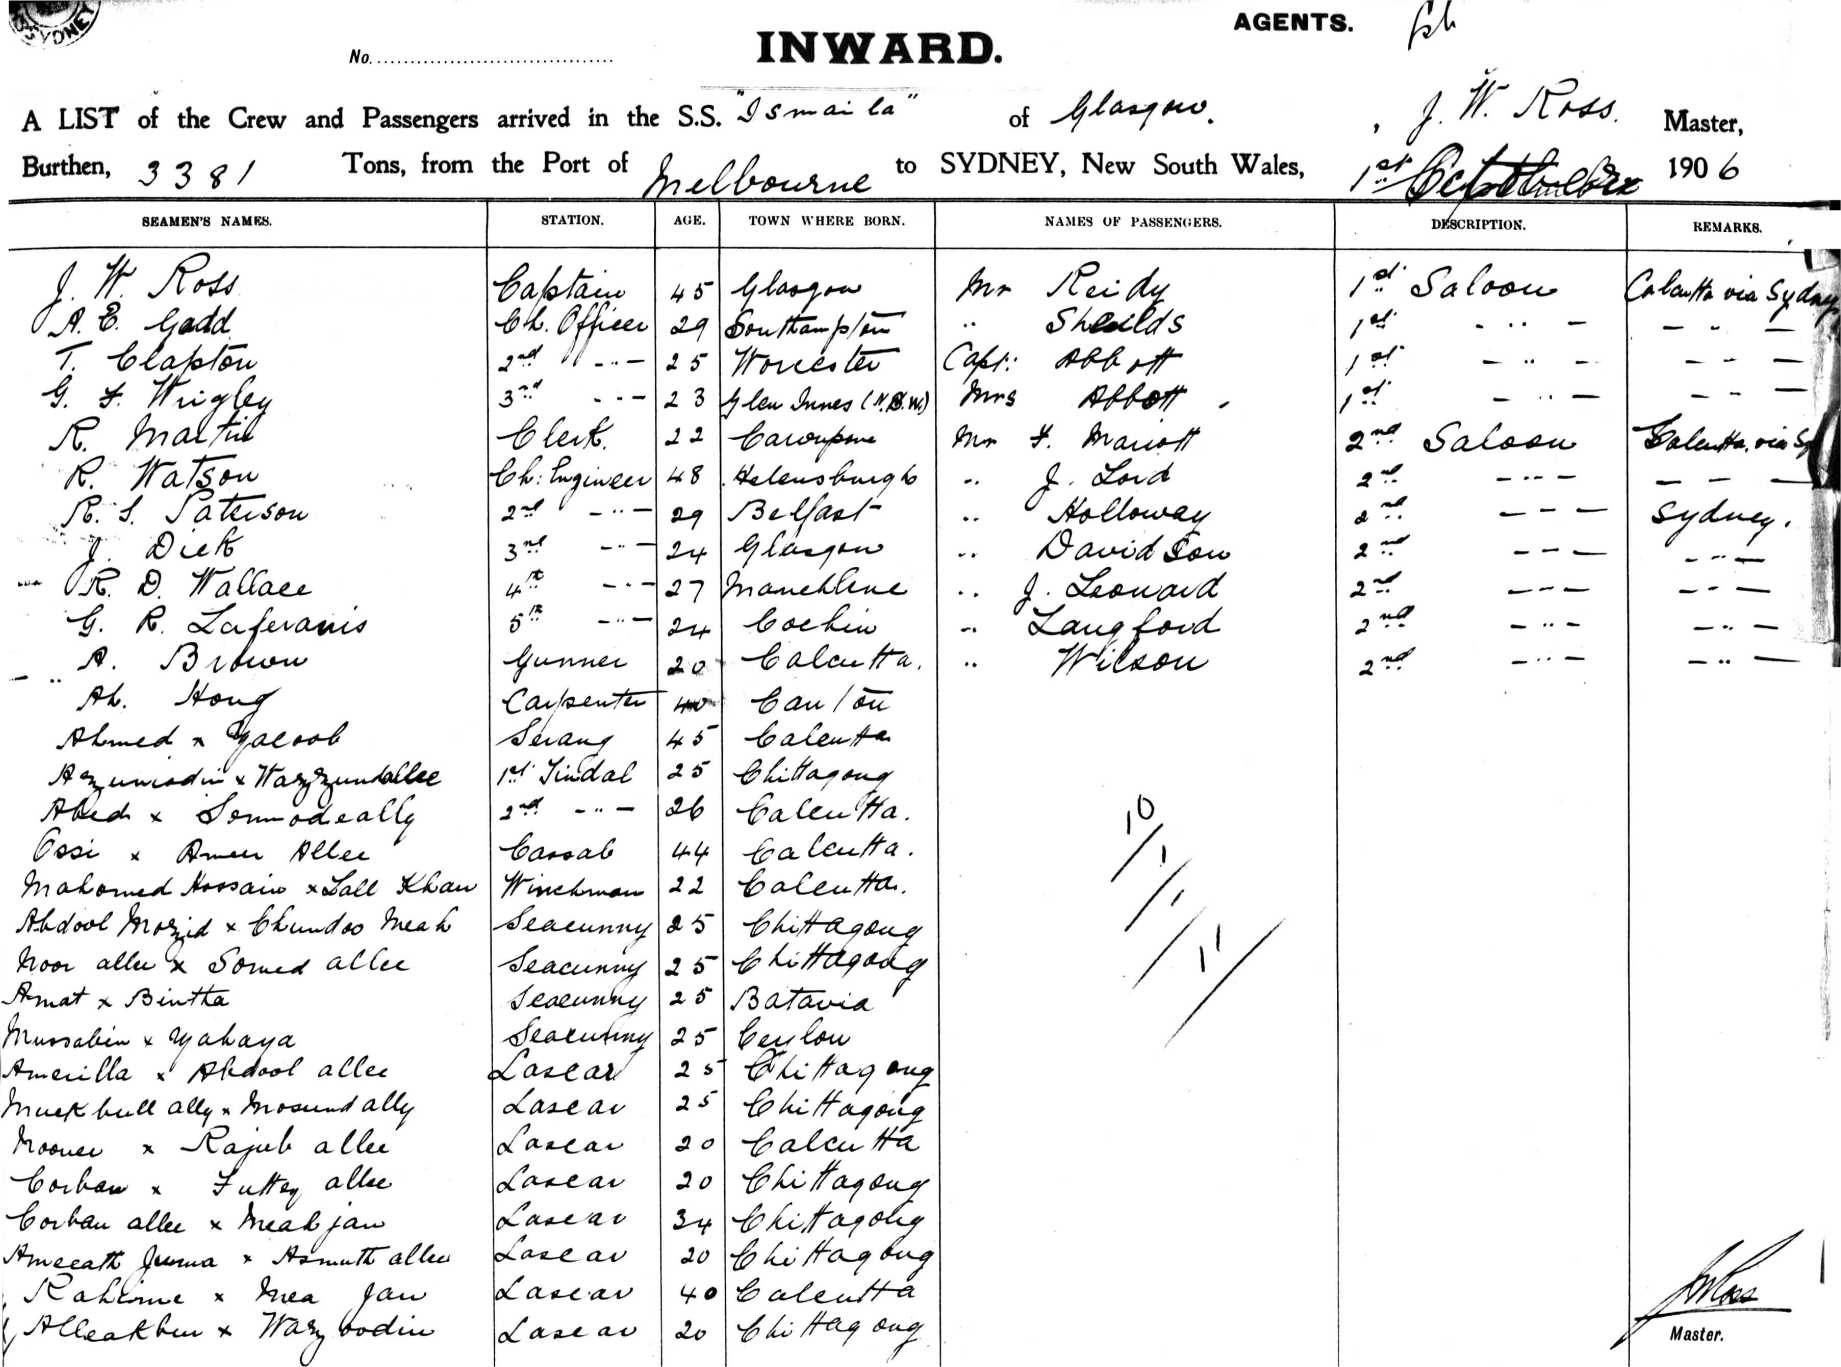 SYDNEY
AGENTS.
No.
INWARD.
A LIST of the Crew and Passengers arrived in the S.S. "Ismaila" of Glasgow. , J. W. Ross. Master,
Burthen, 3381 Tons, from the Port of Melbourne to SYDNEY, New South Wales, 1st 1906
SEAMEN'S NAMES. STATION. AGE. TOWN WHERE BORN. NAMES OF PASSENGERS. DESCRIPTION. REMARKS.
J. W. Ross Captain 45 Glasgow Mr Reidy 1st Saloon Calcutta via Sydney
A. E. Gadd Ch. Officer 29 Southampton " Sheilds 1st - " - - " -
T. Clapton 2nd - " - 25 Worcester Capt: Abbott 1st - " - - " -
G. F. Wrigley 3rd - " - 23 Glen Innes (N.S.W.) Mrs Abbott 1st - " - - " -
R. Martin Clerk. 22 Cawnpore Mr F. Mariott 2nd Saloon Calcutta via Sy
R. Watson Ch: Engineer 48 Helensburgh " J. Lord 2nd - " - - - -
R. S. Paterson 2nd - " - 29 Belfast " Holloway 2nd - " - Sydney.
J. Dick 3rd - " - 24 Glasgow " Davidson 2nd - " - - " -
R. D. Wallace 4th - " - 27 Mauchline " J. Leonard 2nd - " - - " -
G. R. Laferanis 5th - " - 24 Cochin " Langford 2nd - " - - " -
A. Brown Gunner 20 Calcutta. " Wilson 2nd - " - - " -
Ah. Hong Carpenter 40 Canton
Ahmed x Yacoob Serang 45 Calcutta
Azumodin x 1st Tindal 25 Chittagong
Abed x Sommodeally 2nd - " - 26 Calcutta.
Ossi x Ameer Allee Cassab 44 Calcutta.
Mahomed Hossain x Lall Khan Winchman 22 Calcutta.
Abdool Mozid x Chundoo Meah Seacunny 25 Chittagong
Noor allee x Somed allee Seacunny 25 Chittagong
Amat x Bintha Seacunny 25 Batavia
Mussabin x Yahaya Seacunny 25 Ceylon
Amerilla x Abdool allee Lascar 25 Chittagong
Muckbull ally x Mosund ally Lascar 25 Chittagong
Nooner x Rajub allee Lascar 20 Calcutta
Corban x Futtey allee Lascar 20 Chittagong
Corban allee x Meahjan Lascar 34 Chittagong
Ameeath Jumma x Asmuth allee Lascar 20 Chittagong
Rahime x Mea Jan Lascar 40 Calcutta
Alleakbur x Wazoodin Lascar 20 Chittagong
10/1/1/11/
JWRoss
Master.